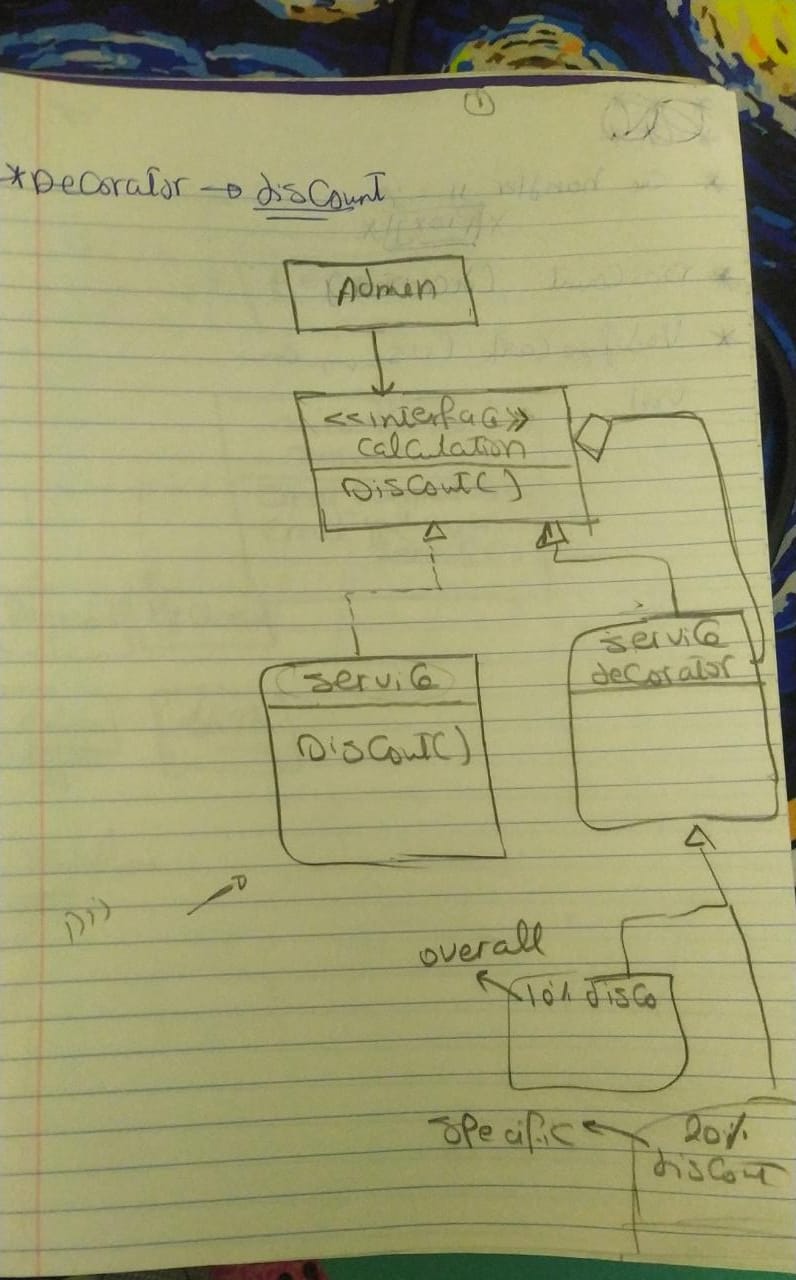 ①
*Decorator → discount
Admen
<<interface>>
calculation
Discount()
service
Discount()
service
decorator
overall
10% disco
specific
20%
discout